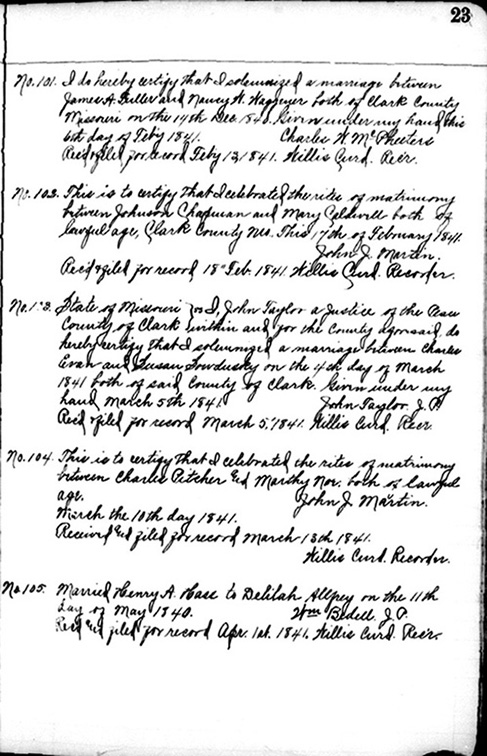 23
No. 101. I do hereby certify that I solemnized a marriage between
James A. Fuller and Nancy W. both of Clark County
Missouri on the 14th Dec. 1840. Given under my hand this
6th day of Feby 1841. Charles W. McPheeters
Recd & filed for record Feby 12, 1841. Willis Curd. Recr.
No. 102. This is to certify that I celebrated the rites of matrimony
between Johnson Chapman and Mary Caldwell both of
lawful age, Clark County Mo. This 17th of February 1841.
John J. Martin.
Rec'd & filed for record 18th Feb. 1841 Willis Curd. Recorder.
No. 103. State of Missouri I, John Taylor a Justice of the Peace
County of Clark within and for the County aforesaid, do
hereby certify that I solemnized a marriage between Charles
Evan and Susan on the 4th day of March
1841 both of said County of Clark. Given under my
hand March 5th 1841. John Taylor. J. P.
Rec'd & filed for record March 5, 1841. Willis Curd. Recr.
No. 104. This is to certify that I celebrated the rites of matrimony
between Charles Pitcher and Marthy both of lawful
age. John J. Martin.
March the 10th day 1841.
Received and filed for record March 13th 1841.
Willis Curd. Recorder.
No. 105. Married Henry A. Hase to Delilah on the 11th
day of May 1840. Wm Bedell. J. P.
Recd and filed for record Apr. 1st. 1841. Willis Curd. Recr.